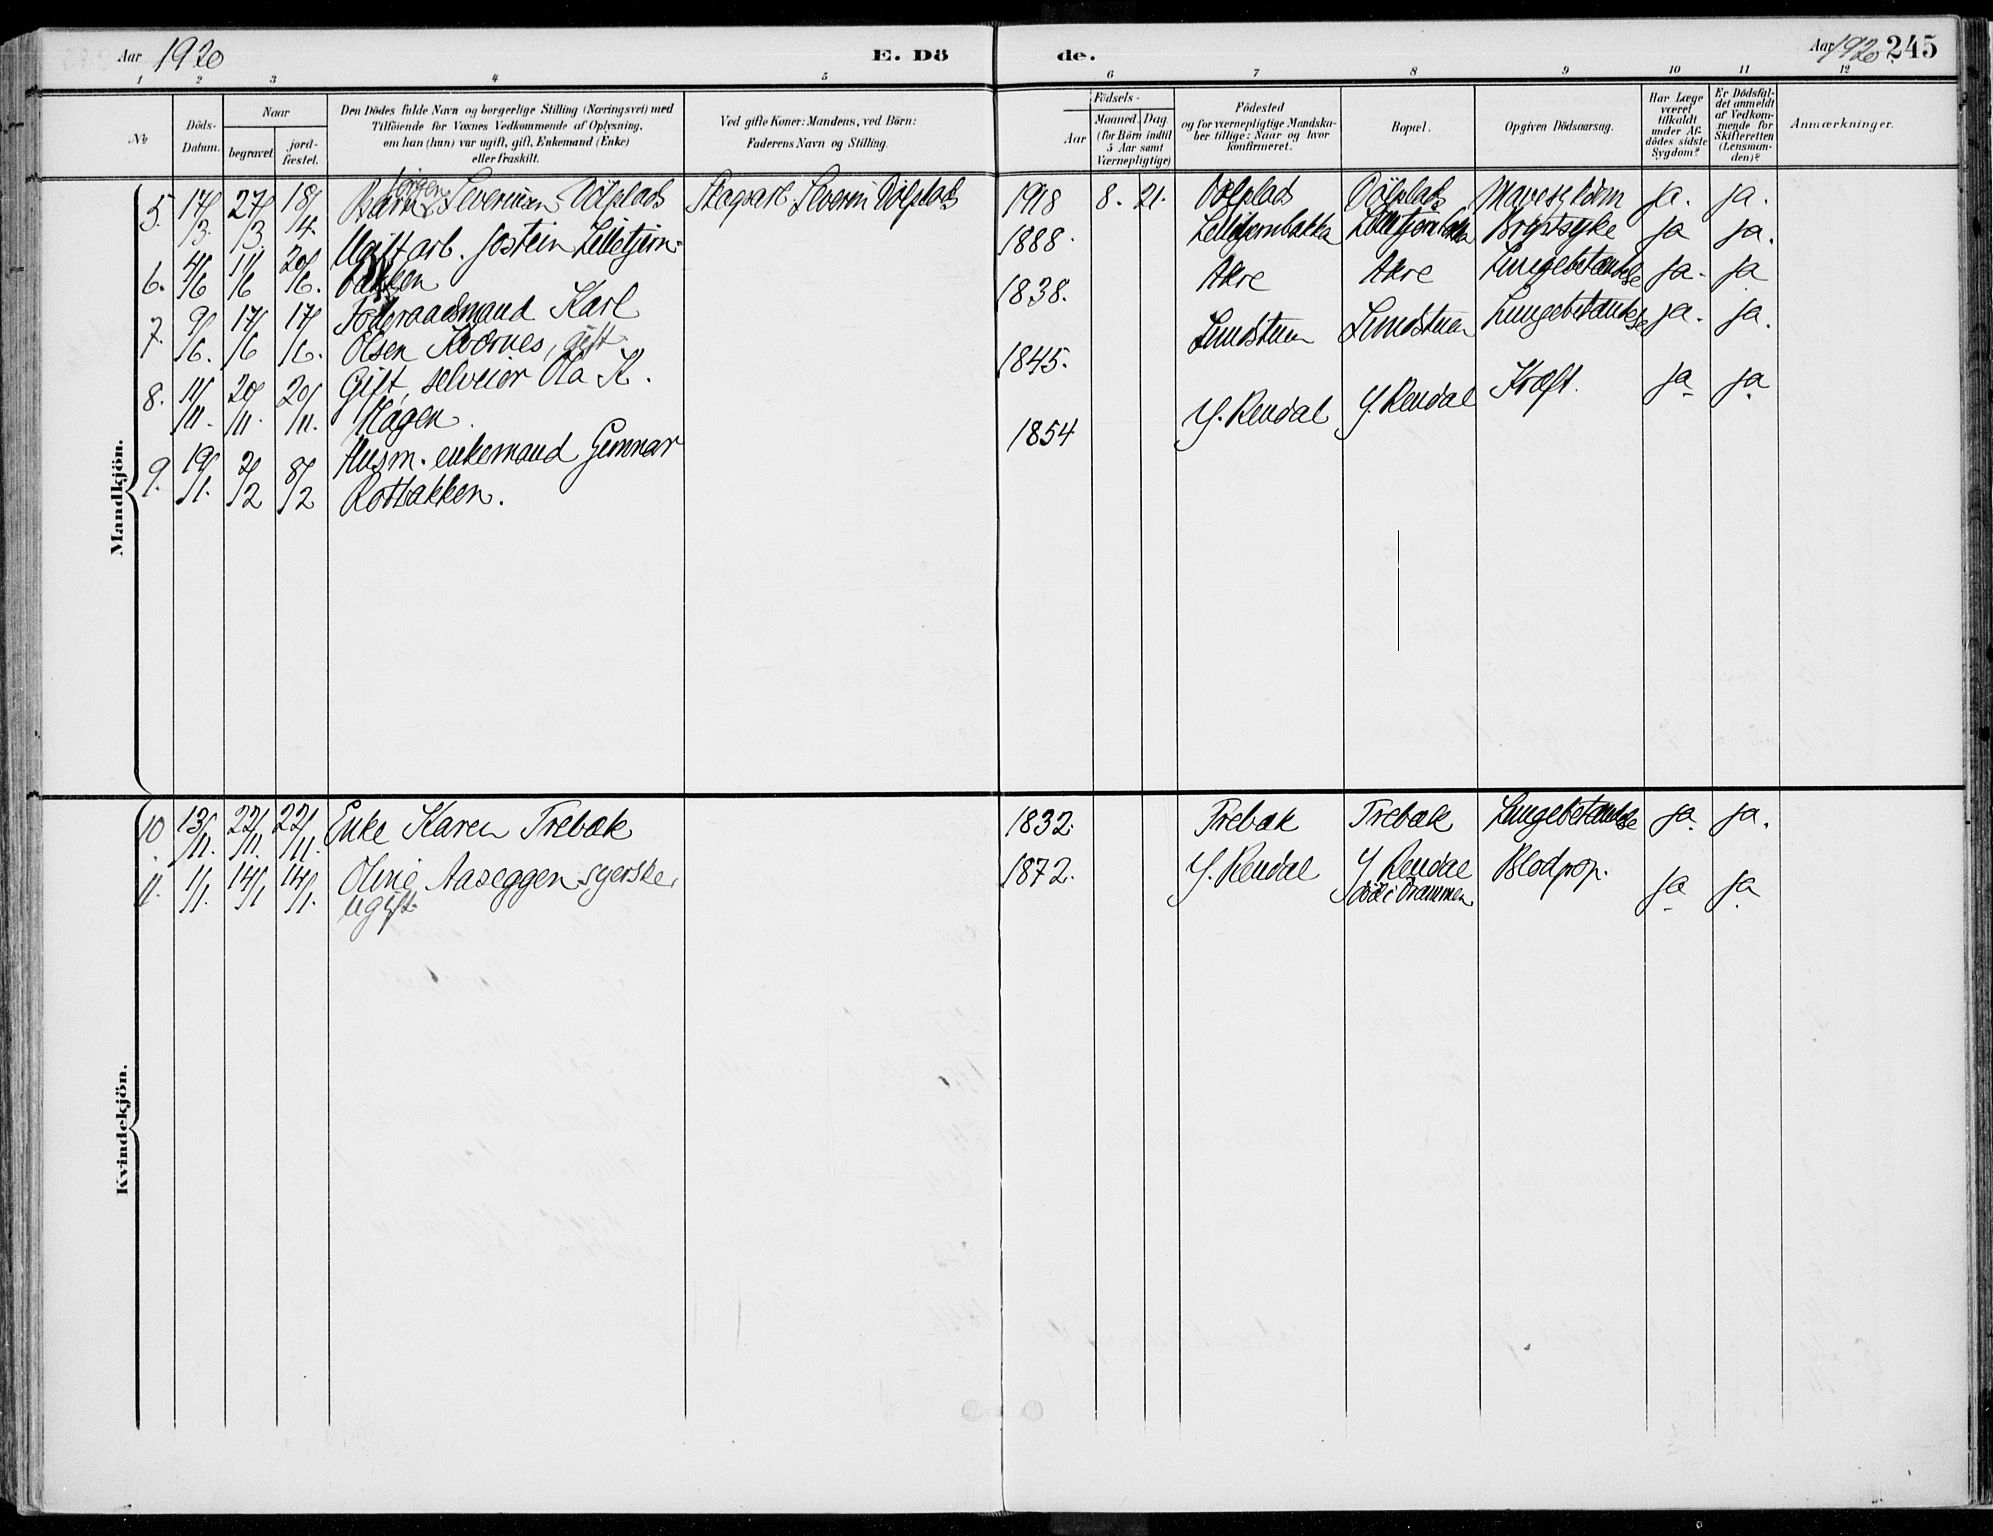 Aar 1920 E. Dö
1 2 3 4 5
No
Döds-Datum.
Naar
begravet.
jord-fæstet.
Den Dödes fulde Navn og borgerlige Stilling (Næringsvei) med
Tilföiende for Voxnes Vedkommende af Oplysning,
om han (hun) var ugift, gift, Enkemand (Enke)
eller fraskilt.
Ved gifte Koner: Mandens, ved Börn:
Faderens Navn og Stilling.
de. Aar 1920 245
6 7 8 9 10 11 12
Födsels-
Aar
Maaned. Dag
(for Börn indtil
5 Aar samt
Værnepligtige)
Födested
og for værnepligtige Mandska-
ber tillige: Naar og hvor
konfirmeret.
Bopæl.
Opgiven Dödsaarsag.
Har Læge
været
tilkaldt
under Af-
dödes sidste
Sygdom?
Er Dödsfal-
det anmeldt
af Vedkom-
mende for
Skifteretten
(Lensman-
den)?
Anmærkninger.
Mandkjön.
Jörgen
5. 17/3. 27/3. 18/4. Barn Severinsen Dölplads Skogsarb. Severin Dölplads 1918 8. 21. Dölplads Dölplads Mavesykdom ja. ja.
6. 4/6 11/6 20/6. Ugift arb. Jostein Lilletjern- 1888. Lilletjernbakka Lilletjernbakka Brystsyke ja ja.
bakken
7. 9/6. 17/6 17/6. Föderaadsmand Karl 1838. Akre Akre Lungebetændelse ja. ja
Olsen Kværnes, gift.
8. 11/11. 20/11. 20/11. Gift, selveier Ola K. 1845. Lundstuen Lundstuen Lungebetændelse ja. ja.
Hagen.
9. 19/1. 2/2 8/2 Husm. enkemand Gunnar 1854 Y. Rendal Y. Rendal Kræft. ja ja
Rotbakken.
Kvindekjön.
10. 13/11. 22/11. 22/11. Enke Karen Trebak 1832. Trebak Trebak Lungebetændelse ja ja.
11. 1/1. 14/1 14/1. Oline Aaseggen syerske, 1872. Y. Rendal Y. Rendal Blodprop. ja ja
ugift. död i Drammen